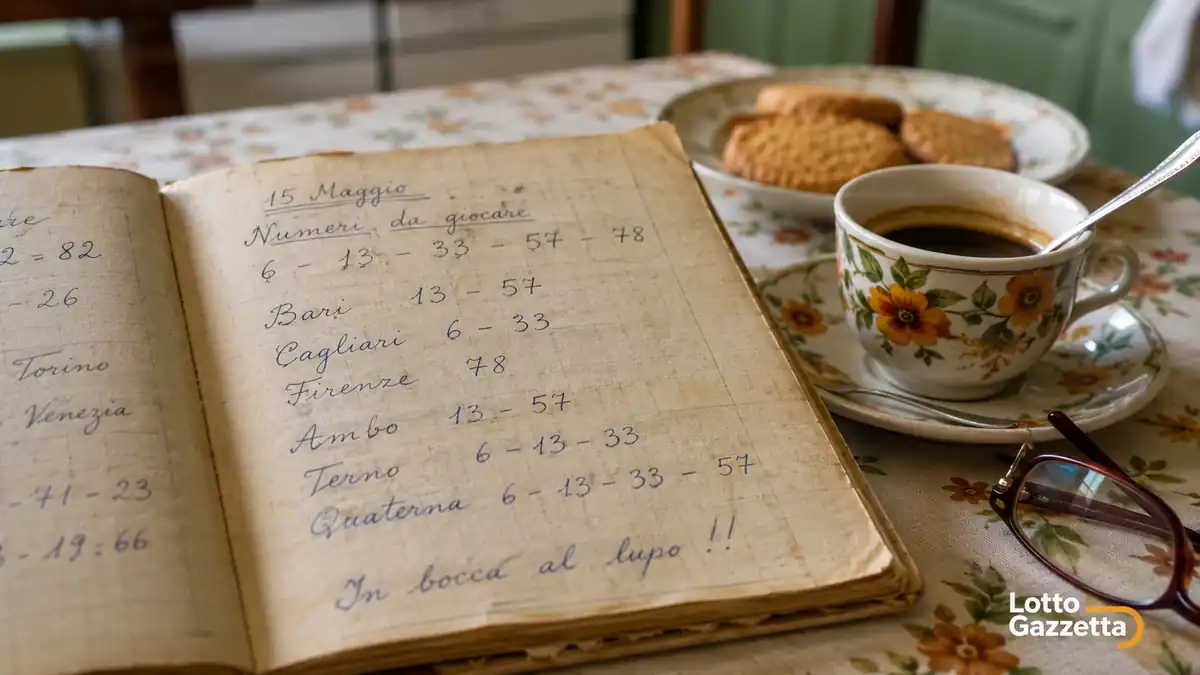 2 = 82
- 26
Torino
Venezia
- 71 - 23
- 19 : 66
15 Maggio
Numeri da giocare
6 - 13 - 33 - 57 - 78
Bari 13 - 57
Cagliari 6 - 33
Firenze 78
Ambo 13 - 57
Terno 6 - 13 - 33
Quaterna 6 - 13 - 33 - 57
In bocca al lupo !!
Lotto
Gazzetta